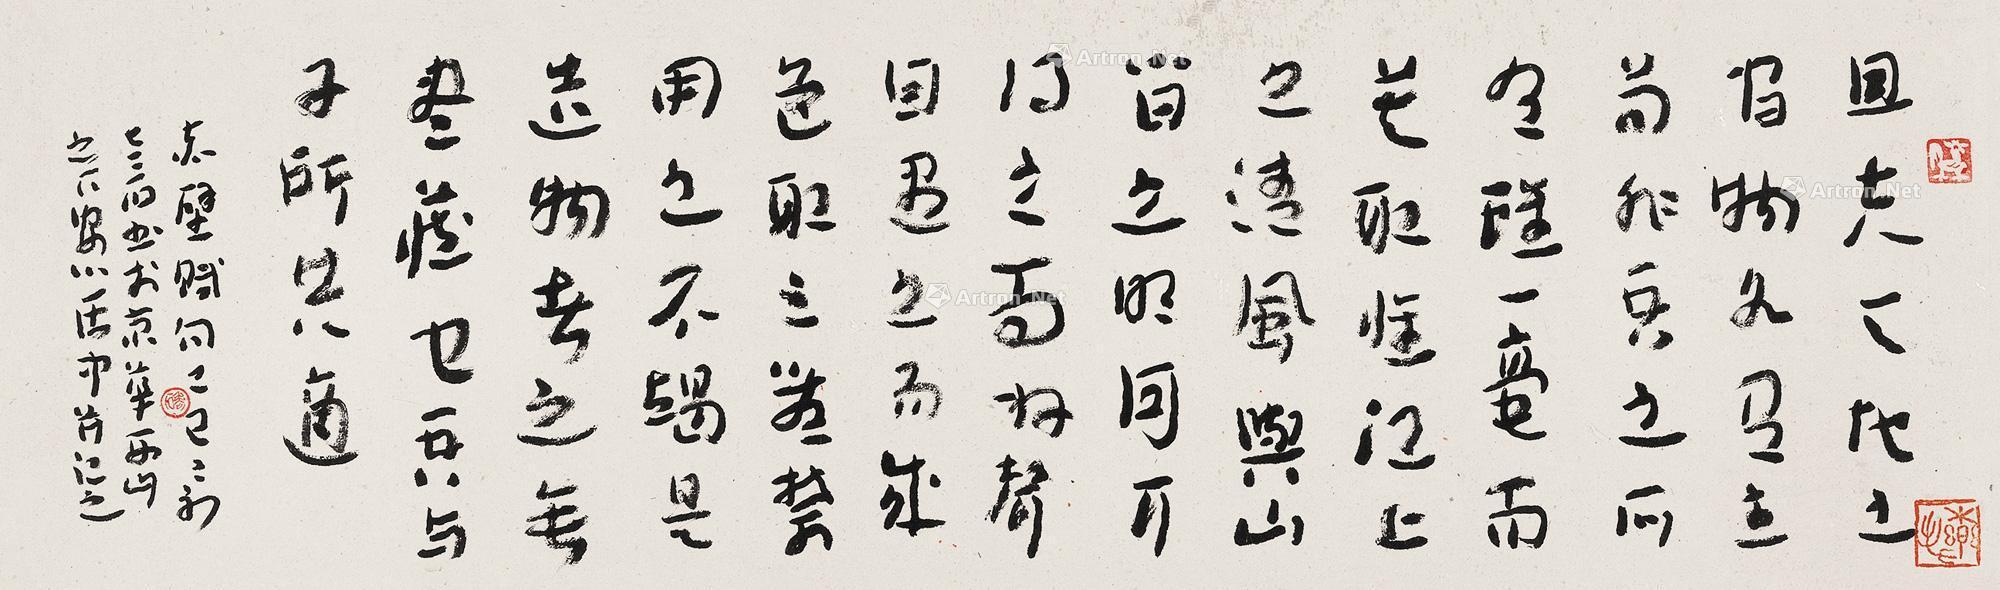 且夫天地之
間物各有主
苟非吾之所
有雖一毫而
莫取惟江上
之清風與山
間之明月耳
得之而為聲
目遇之而成
色取之無禁
用之不竭是
造物者之無
盡藏也吾与
子所共適
赤壁賦句己巳之初
书於京華西山
之下居中并记之
Artron.Net
Artron.Net
Artron.Net